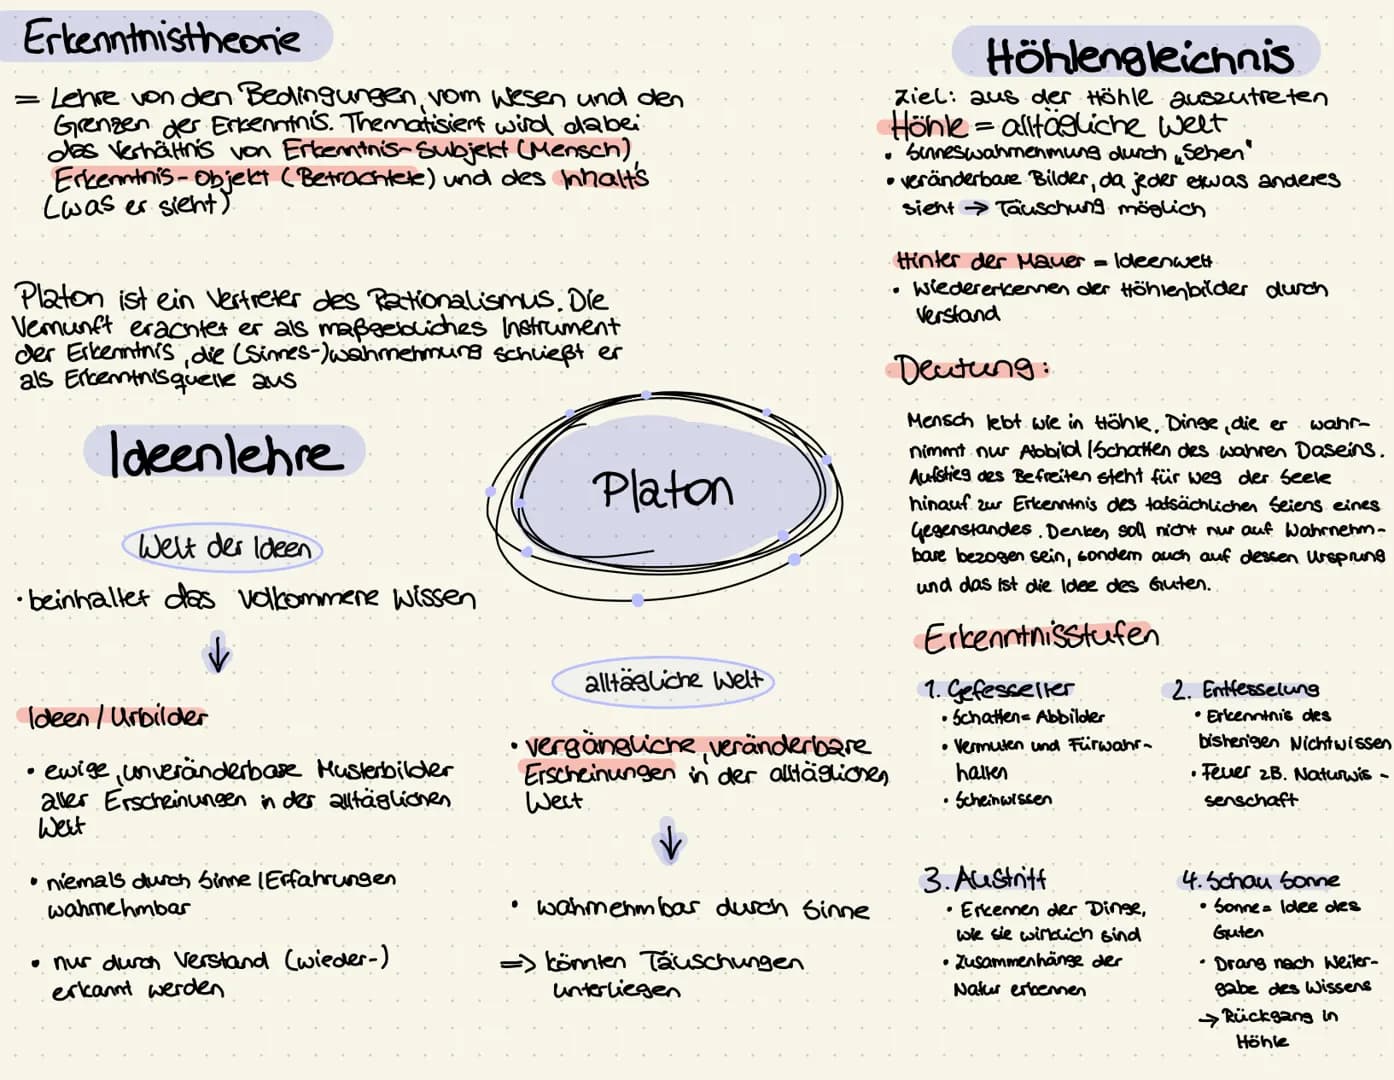 Erkenntnistheorie
= Lehre von den Bedingungen, vom Wesen und den
Grenzen der Erkenntnis. Thematisiert wird dabei
das Verhältnis von Erkenntnis-Subjekt (Mensch),
Erkenntnis-Objekt (Betrachtete) und des Inhalts
(was er sieht)
Platon ist ein Vertreter des Rationalismus. Die
Vernunft erachtet er als maßgebliches Instrument
der Erkenntnis, die (Sinnes-)wahrnehmung schließt er
als Erkenntnisquelle aus
Ideenlehre
Welt der Ideen
• beinhaltet das volkommene Wissen
↓
Ideen / Urbilder
• ewige, unveränderbare Musterbilder
aller Erscheinungen in der alltäglichen
Welt
• niemals durch Sinne / Erfahrungen
wahrnehmbar
• nur durch Verstand (wieder-)
erkannt werden
Platon
alltägliche Welt
• vergängliche, veränderbare
Erscheinungen in der alltäglichen
Welt
↓
• wahrnehmbar durch Sinne
=> könnten Täuschungen
unterliegen
Höhlengleichnis
Ziel: aus der Höhle auszutreten
Höhle = alltägliche Welt
• Sinneswahrnehmung durch „Sehen"
• veränderbare Bilder, da jeder etwas anderes
sieht → Täuschung möglich
Hinter der Mauer = Ideenwelt
• Wiedererkennen der Höhlenbilder durch
Verstand
Deutung:
Mensch lebt wie in Höhle. Dinge, die er wahr-
nimmt nur Abbild / Schatten des wahren Daseins.
Aufstieg des Befreiten steht für Weg der Seele
hinauf zur Erkenntnis des tatsächlichen Seiens eines
Gegenstandes. Denken soll nicht nur auf Wahrnehm-
bare bezogen sein, sondern auch auf dessen Ursprung
und das ist die Idee des Guten.
Erkenntnisstufen
1. Gefesselter
• Schatten = Abbilder
• Vermuten und Fürwahr-
halten
• Scheinwissen
2. Entfesselung
• Erkenntnis des
bisherigen Nichtwissen
• Feuer zB. Naturwis-
senschaft
3. Austritt
• Erkennen der Dinge,
wie sie wirklich sind
• Zusammenhänge der
Natur erkennen
4. Schau Sonne
• Sonne = Idee des
Guten
• Drang nach Weiter-
gabe des Wissens
→ Rückgang in
Höhle